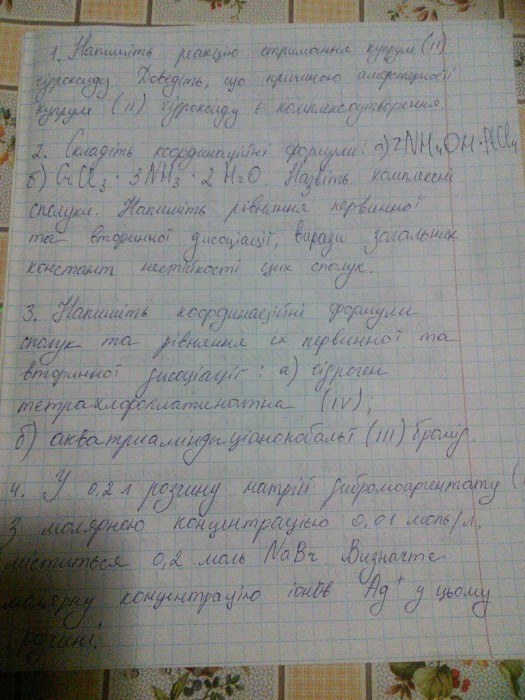 1. Напишіть реакцію отримання купрум (II)
гідроксиду. Доведіть, що причиною амфотерності
купрум (II) гідроксиду є комплексоутворення
2. Складіть координаційні формули: а) 2NH4OH·PtCl4
б) CrCl3 · 3NH3 · 2H2O. Назвіть комплексні
сполуки. Напишіть рівняння первинної
та вторинної дисоціації, вирази загальних
констант нестійкості цих сполук.
3. Напишіть координаційні формули
сполук та рівняння їх первинної та
вторинної дисоціації: а) гідроген
(IV);
б) акватриаміндиціанокобальт (III) бромід.
4. У 0,2 л розчину натрій дибромоаргентату (
З молярною концентрацією 0,01 моль/л,
міститься 0,2 моль NaBr Визначте
молярну концентрацію іонів Ag+ у цьому
розчині.